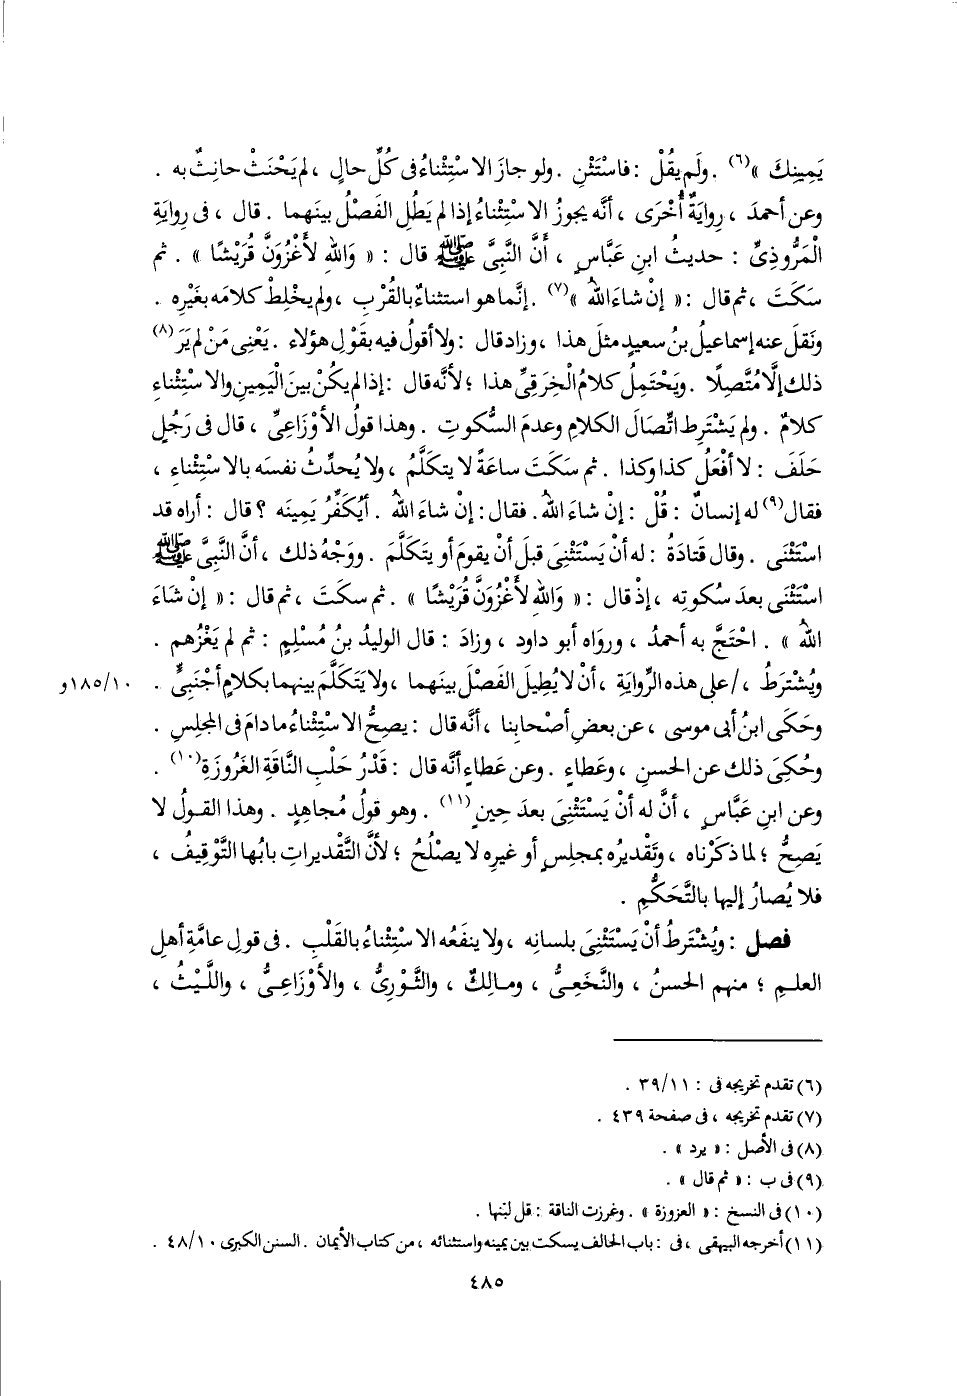 يَمِينِكَ »(٦) . ولَم يقُلْ : فاسْتَثْنِ . ولو جازَ الاسْتِثْناءُ فى كُلِّ حالٍ ، لم يَحْنَثْ حانِثٌ به .
وعن أحمدَ ، رِوايَةٌ أُخْرَى ، أنَّه يجوزُ الاسْتِثْناءُ إذا لم يَطُلِ الفَصْلُ بينَهما . قال ، فى رِوايَةِ
الْمَرُّوذِىِّ : حديثُ ابنِ عَبَّاسٍ ، أَنَّ النَّبِىَّ ﷺ قال : « وَاللهِ لَأَغْزُوَنَّ قُرَيْشًا » . ثم
سَكَتَ ، ثم قال : « إنْ شاءَ اللهُ »(٧) . إنَّما هو استثناءٌ بالقُرْبِ ، ولم يخْلِطْ كلامَه بغَيْرِه .
ونَقلَ عنه إسماعيلُ بنُ سعيدٍ مثلَ هذا ، وزاد قال : ولا أقولُ فيه بقَوْلِ هؤلاء . يَعْنِى مَنْ لم يَرَ(٨)
ذلك إلَّا مُتَّصِلًا . ويَحْتَمِلُ كلامُ الْخِرَقِىِّ هذا ؛ لأنَّه قال : إذا لم يكُنْ بينَ الْيَمِينِ والاسْتِثْناءِ
كلامٌ . ولم يَشْتَرِط اتِّصَالَ الكلامِ وعدمَ السُّكوتِ . وهذا قولُ الأوْزَاعِىِّ ، قال فى رَجُلٍ
حَلَفَ : لا أفْعَلُ كذا وكذا . ثم سَكَتَ ساعَةً لا يتكَلَّمُ ، ولا يُحدِّثُ نفسَه بالاسْتِثْناءِ ،
فقال(٩) له إنسانٌ : قُلْ : إنْ شاءَ اللهُ . فقال : إنْ شاءَ اللهُ . أيُكَفِّرُ يَمِينَه ؟ قال : أراه قد
اسْتَثْنَى . وقال قَتادَةُ : له أنْ يَسْتَثْنِىَ قبلَ أنْ يقومَ أو يتَكَلَّمَ . ووَجْهُ ذلك ، أنَّ النَّبِىَّ ﷺ
اسْتَثْنَى بعدَ سُكوتِه ، إذ قال : « وَاللهِ لَأَغْزُوَنَّ قُرَيْشًا » . ثم سكتَ ، ثم قال : « إنْ شَاءَ
اللهُ » . احْتَجَّ به أحمدُ ، وروَاه أبو داود ، وزادَ : قال الوليدُ بنُ مُسْلِمٍ : ثم لم يَغْزُهم .
ويُشْترَطُ ، / على هذه الرِّوايَةِ ، أنْ لا يُطِيلَ الفَصْلَ بينَهما ، ولا يَتَكَلَّمَ بينهما بكلامٍ أجْنَبِىٍّ . ١٨٥/١٠و
وحَكَى ابنُ أبى موسى ، عن بعضِ أصْحابِنا ، أنَّه قال : يصِحُّ الاسْتِثْناءُ ما دامَ فى المجلِسِ .
وحُكِىَ ذلك عن الحسنِ ، وعَطاءٍ . وعن عَطاءٍ أنَّه قال : قَدْرُ حَلْبِ النَّاقَةِ الغَرُوزَةِ(١٠) .
وعن ابنِ عَبَّاسٍ ، أنَّ له أنْ يَسْتَثْنِىَ بعدَ حِينٍ(١١) . وهو قولُ مُجاهِدٍ . وهذا القولُ لا
يَصِحُّ ؛ لما ذكَرْناه ، وتَقْديرُه بمجلِسٍ أو غيرِه لا يصْلُحُ ؛ لأنَّ التَّقْديراتِ بابُها التَّوْقِيفُ ،
فلا يُصارُ إليها بالتَّحَكُّمِ .
فصل : ويُشْتَرطُ أنْ يَسْتَثْنِىَ بلسانِه ، ولا ينفَعُه الاسْتِثْناءُ بالقَلْبِ . فى قولِ عامَّةِ أهلِ
العلمِ ؛ منهم الحسنُ ، والنَّخَعِىُّ ، ومالِكٌ ، والثَّوْرِىُّ ، والأوْزَاعِىُّ ، واللَّيْثُ ،
(٦) تقدم تخريجه فى : ٣٩/١١ .
(٧) تقدم تخريجه ، فى صفحة ٤٣٩ .
(٨) فى الأصل : « يرد » .
(٩) فى ب : « ثم قال » .
(١٠) فى النسخ : « العزوزة » . وغرزت الناقة : قل لبَنها .
(١١) أخرجه البيهقى ، فى : باب الحالف يسكت بين يمينه واستثنائه ، من كتاب الأيمان . السنن الكبرى ٤٨/١٠ .
٤٨٥